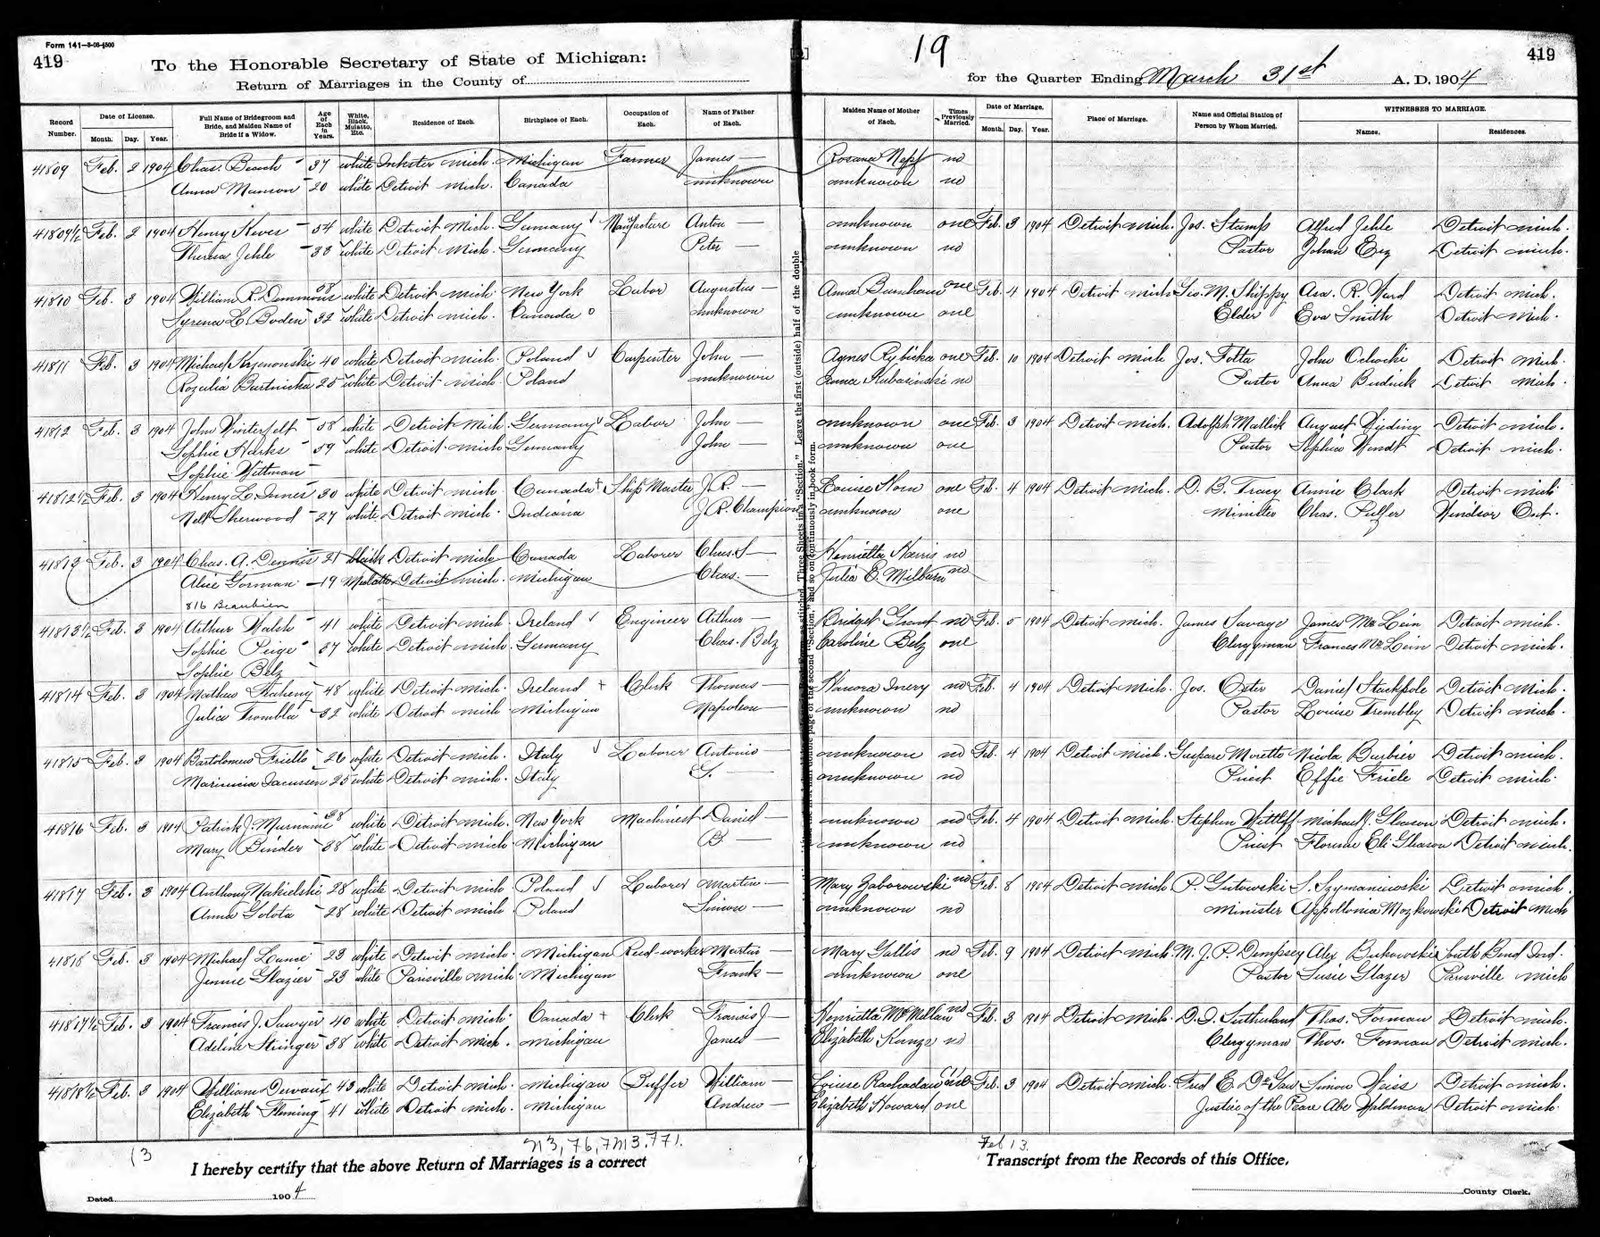 Form 141—3-03-4500
419
To the Honorable Secretary of State of Michigan:
Return of Marriages in the County of
19
for the Quarter Ending March 31st A. D. 1904
419
Record Number. Date of License. Month. Day. Year. Full Name of Bridegroom and Bride, and Maiden Name of Bride if a Widow. Age of Each in Years. White, Black, Mulatto, Etc. Residence of Each. Birthplace of Each. Occupation of Each. Name of Father of Each. Maiden Name of Mother of Each. Times Previously Married. Date of Marriage. Month. Day. Year. Place of Marriage. Name and Official Station of Person by Whom Married. WITNESSES TO MARRIAGE. Names. Residences.
41809 Feb. 2 1904 Chas. Beach 37 white Inkster Mich. Michigan Farmer James Rosana Neff no
Anna Manson 20 white Detroit Mich. Canada unknown unknown no
41809½ Feb. 2 1904 Henry Kever 54 white Detroit Mich. Germany Manufacture Anton unknown one Feb. 3 1904 Detroit Mich. Jos. Stamp Alfred Jehle Detroit Mich.
Theresa Jehle 38 white Detroit Mich. Germany Peter unknown no Pastor Johan Erz Detroit Mich.
41810 Feb. 3 1904 William R. Demmons 38 white Detroit Mich. New York Labor Augustus Anna Burnham one Feb. 4 1904 Detroit Mich. Geo. M. Shippy Asa. R. Ward Detroit Mich.
Syrena E. Boden 32 white Detroit Mich. Canada unknown unknown one Elder Eva Smith Detroit Mich.
41811 Feb. 3 1904 Michael 40 white Detroit Mich. Poland Carpenter John Agnes Rybicka one Feb. 10 1904 Detroit Mich. Jos. Folta John Detroit Mich.
Rozalia Bartnicka 25 white Detroit Mich. Poland unknown Anna Kubasinski no Pastor Anna Budnik Detroit Mich.
41812 Feb. 3 1904 John Winterfelt 58 white Detroit Mich. Germany Labor John unknown one Feb. 3 1904 Detroit Mich. Adolph Mallick August Detroit Mich.
Sophie Harks 59 white Detroit Mich. Germany John unknown one Pastor Sophia Wendt Detroit Mich.
Sophie Wittman
41812½ Feb. 3 1904 Henry L. Innes 30 white Detroit Mich. Canada Ship Master J.R. Louise Horn one Feb. 4 1904 Detroit Mich. D. B. Tracy Annie Clark Detroit Mich.
Nell Sherwood 27 white Detroit Mich. Indiana J.R. Champion unknown one Minister Chas. Pulfer Windsor Ont.
41813 Feb. 3 1904 Chas. A. Dennis 21 black Detroit Mich. Canada Laborer Chas. S. Henrietta Harris no
Alice Gorman 19 Mulatto Detroit Mich. Michigan Chas. Julia E. Milburn no
816 Beaubien
41813½ Feb. 3 1904 Arthur Walsh 41 white Detroit Mich. Ireland Engineer Arthur Bridget Grant no Feb. 5 1904 Detroit Mich. James Savage James McLein Detroit Mich.
Sophie Peige 37 white Detroit Mich. Germany Chas. Belz Caroline Belz one Clergyman Frances McLein Detroit Mich.
Sophie Belz
41814 Feb. 3 1904 Mathew Flaheny 48 white Detroit Mich. Ireland Clerk Thomas Hanora Inery no Feb. 4 1904 Detroit Mich. Jos. Oster Daniel Stackpole Detroit Mich.
Julia Trombla 32 white Detroit Mich. Michigan Napoleon unknown no Pastor Louise Trembley Detroit Mich.
41815 Feb. 3 1904 Bartolomeus Friello 26 white Detroit Mich. Italy Laborer Antonio unknown no Feb. 4 1904 Detroit Mich. Gaspare Moretto Nicola Barbier Detroit Mich.
25 white Detroit Mich. Italy G. unknown no Priest Effie Friele Detroit Mich.
41816 Feb. 3 1904 Patrick J. Murnaine 38 white Detroit Mich. New York Machinest David unknown no Feb. 4 1904 Detroit Mich. Stephen Wittleff Michael J. Gleason Detroit Mich.
Mary Binder 38 white Detroit Mich. Michigan B unknown no Priest Florence Eli Gleason Detroit Mich.
41817 Feb. 3 1904 Anthony Nakielski 28 white Detroit Mich. Poland Laborer Martin Mary Zaborowski no Feb. 8 1904 Detroit Mich. P. Gutowski S. Szymaniewski Detroit Mich.
Anna Golota 28 white Detroit Mich. Poland Simon unknown no Minister Appollonia Mozkowski Detroit Mich
41818 Feb. 3 1904 Michael Lance 23 white Detroit Mich. Michigan Reed-worker Martin Mary Gallis no Feb. 9 1904 Detroit Mich. M. J. P. Dempsey Alex Bukowski South Bend Ind.
Jennie Glazier 23 white Parisville Mich. Michigan Frank unknown one Pastor Susie Glazer Parisville Mich
41817½ Feb. 3 1904 Francis J. Sawyer 40 white Detroit Mich. Canada Clerk Francis J. Henrietta McMillan no Feb. 3 1904 Detroit Mich. D. D. Sutherland Thos. Forman Detroit Mich.
Adeline Stringer 38 white Detroit Mich. Michigan James Elizabeth Kunze no Clergyman Thos. Forman Detroit Mich.
41818½ Feb. 3 1904 William Dewand 43 white Detroit Mich. Michigan Buffer William Louise one Feb. 3 1904 Detroit Mich. Fred E. DeGaw Simon Weiss Detroit Mich.
Elizabeth Fleming 41 white Detroit Mich. Michigan Andrew Elizabeth Howard one Justice of the Peace Abe Waldman Detroit Mich.
(3
Feb 13
I hereby certify that the above Return of Marriages is a correct
Transcript from the Records of this Office.
Dated 1904
County Clerk.